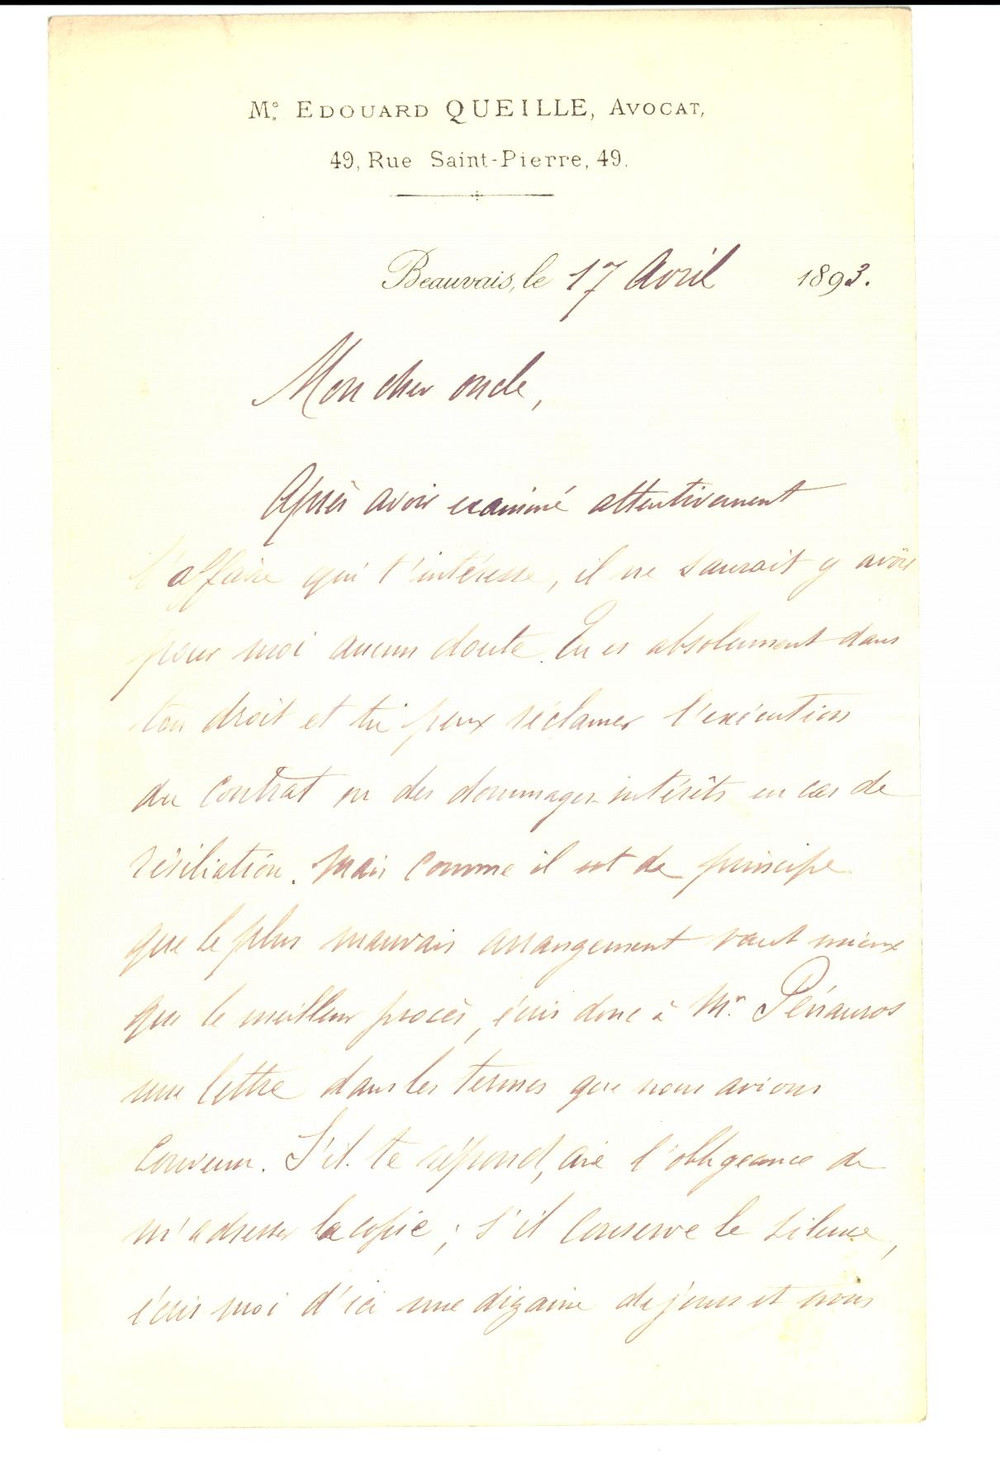 Me. EDOUARD QUEILLE, AVOCAT,
49, Rue Saint-Pierre, 49.
Beauvais, le 17 Avril 1893.
Mon cher oncle,
Après avoir examiné attentivement
l'affaire qui t'intéresse, il ne saurait y avoir
pour moi aucun doute. Tu es absolument dans
ton droit et tu peux réclamer l'exécution
du contrat ou des dommages-intérêts en cas de
résiliation. Mais comme il est de principe
que le plus mauvais arrangement vaut mieux
que le meilleur procès, écris donc à Mr.
une lettre dans les termes que nous avions
convenu. S'il te répond, aie l'obligeance de
m'adresser la copie ; s'il conserve le silence,
écris moi d'ici une dizaine de jours et nous